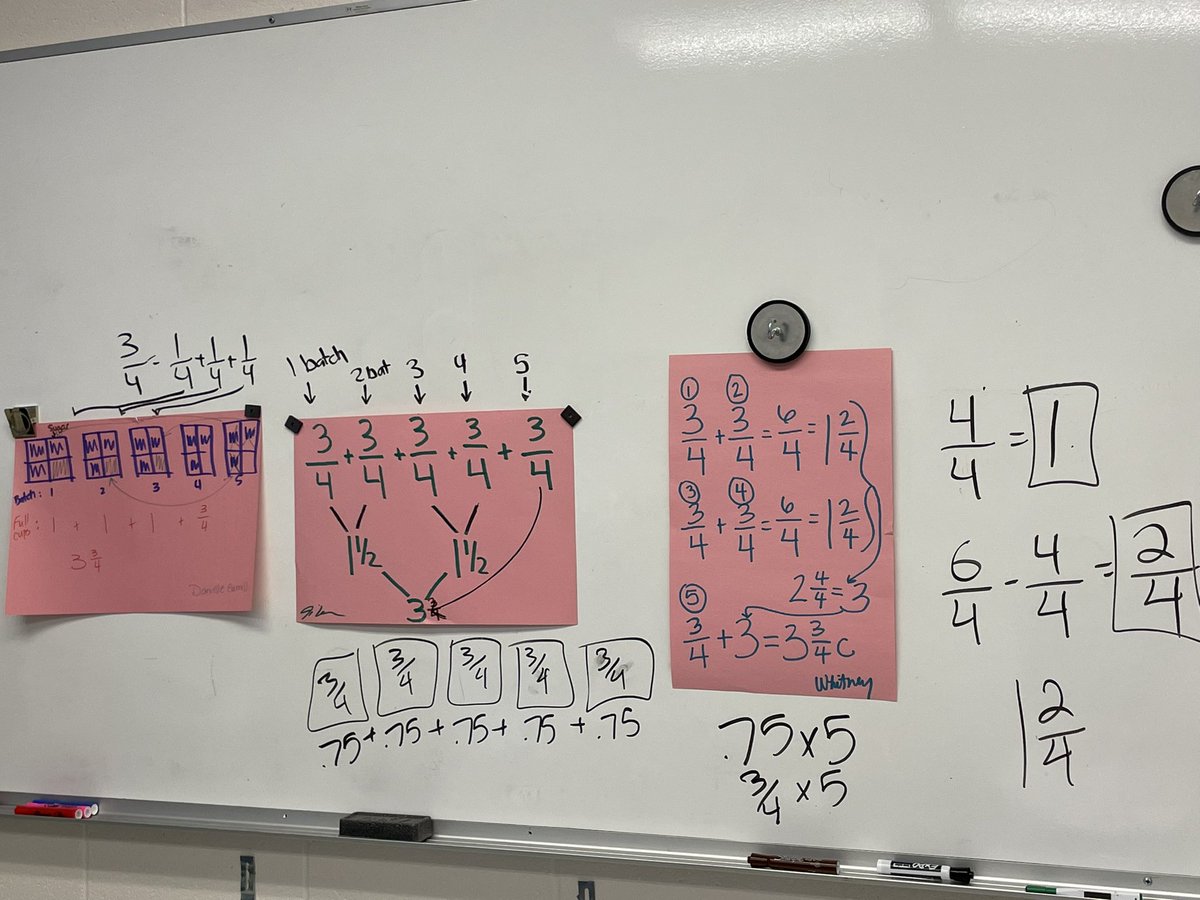 3/4 = 1/4 + 1/4 + 1/4
Sugar
Batch: 1 2 3 4 5
Full cups: 1 + 1 + 1 + 3/4
3 3/4
1 batch 2 bat 3 4 5
3/4 + 3/4 + 3/4 + 3/4 + 3/4
1 1/2 1 1/2
3 3/4
3/4 3/4 3/4 3/4 3/4
.75 + .75 + .75 + .75 + .75
① ②
3/4 + 3/4 = 6/4 = 1 2/4
③ ④
3/4 + 3/4 = 6/4 = 1 2/4
2 4/4 = 3
⑤
3/4 + 3 = 3 3/4 c
Whitney
.75 x 5
3/4 x 5
4/4 = 1
6/4 - 4/4 = 2/4
1 2/4
EXPO